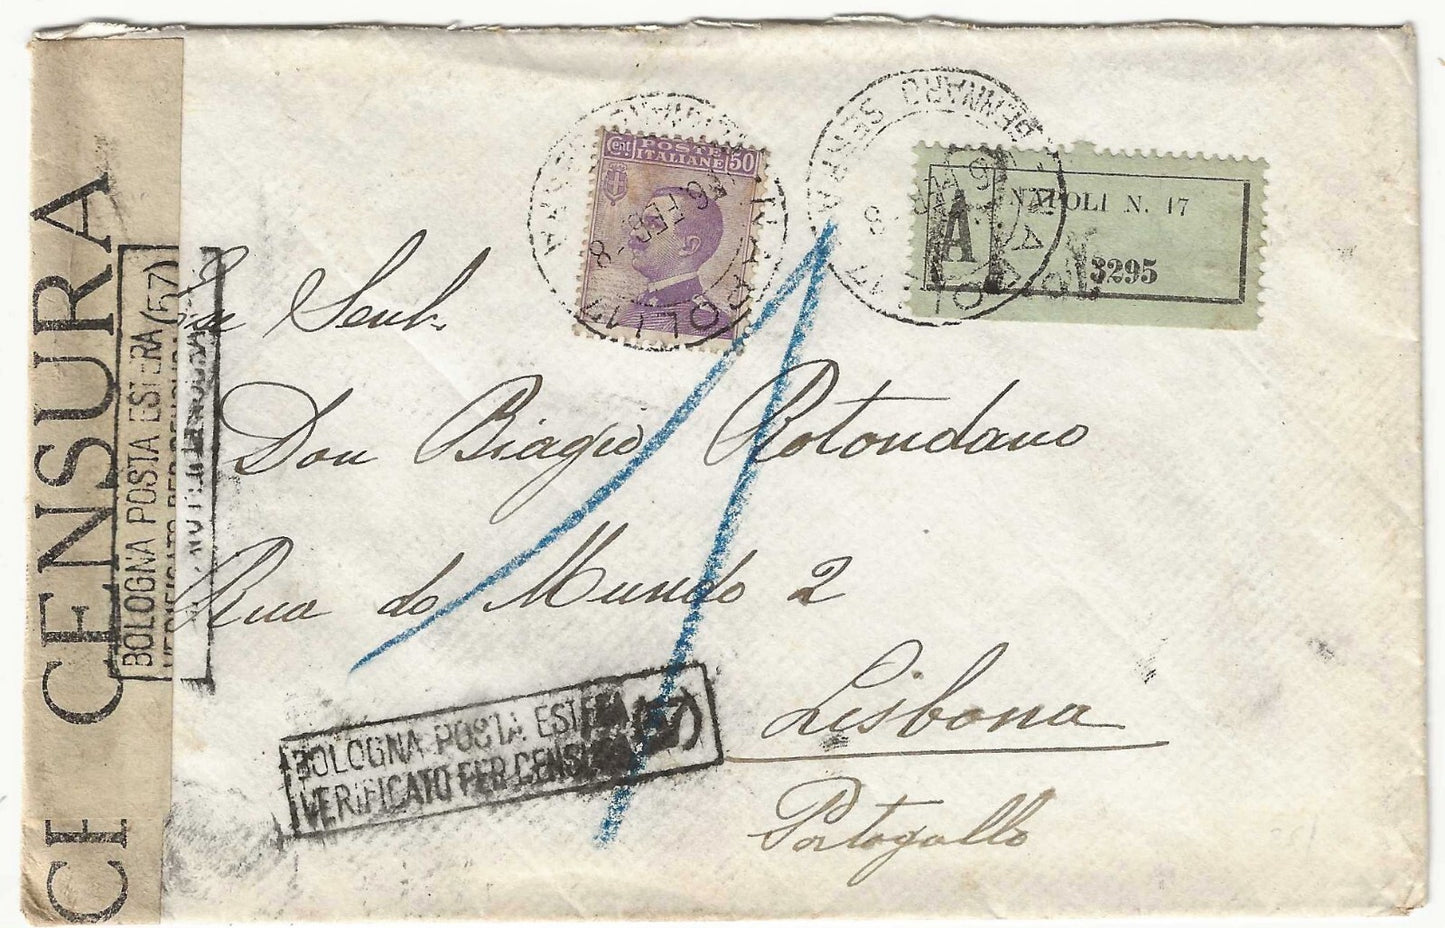 Cent. POSTE ITALIANE 50
NAPOLI 17
FEB
8
NAPOLI 17
8
A
NAPOLI N. 17
3295
Don Biagio Rotondano
Rua do Mundo 2
Lisbona
Portogallo
CENSURA
BOLOGNA POSTA ESTERA (57)
VERIFICATO PER CENSURA
BOLOGNA POSTA ESTERA
VERIFICATO PER CENSURA